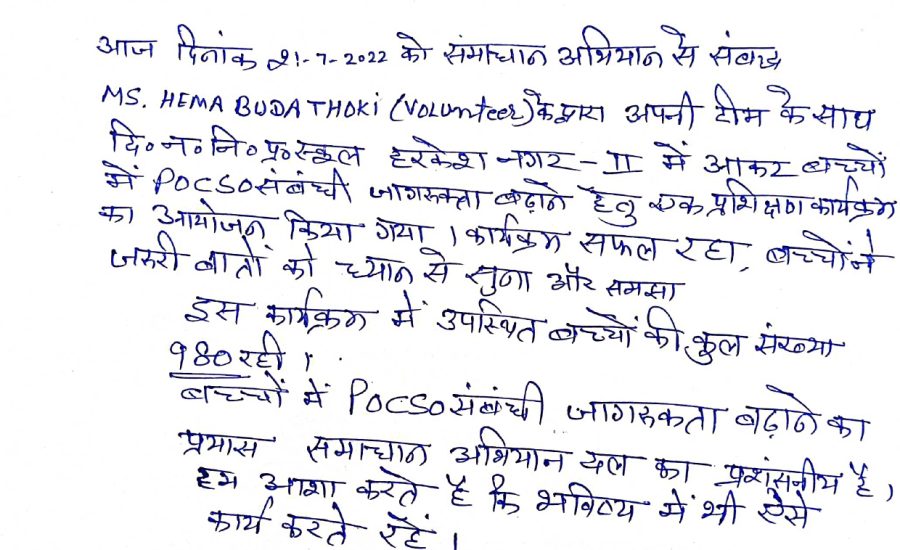 आज दिनांक 21-7-2022 को समाधान अभियान से संबद्ध
MS. HEMA BUDATHOKI (Volunteer) के द्वारा अपनी टीम के साथ
दि॰न॰नि॰प्र॰स्कूल हरकेश नगर-II में आकर बच्चों
में POCSO संबंधी जागरुकता बढ़ाने हेतु एक प्रशिक्षण कार्यक्रम
का आयोजन किया गया । कार्यक्रम सफल रहा, बच्चों ने
जरुरी बातों को ध्यान से सुना और समझा
इस कार्यक्रम में उपस्थित बच्चों की कुल संख्या
980 रही ।
बच्चों में POCSO संबंधी जागरुकता बढ़ाने का
प्रयास समाधान अभियान दल का प्रशंसनीय है ,
हम आशा करते है कि भविष्य में भी ऐसे
कार्य करते रहें ।